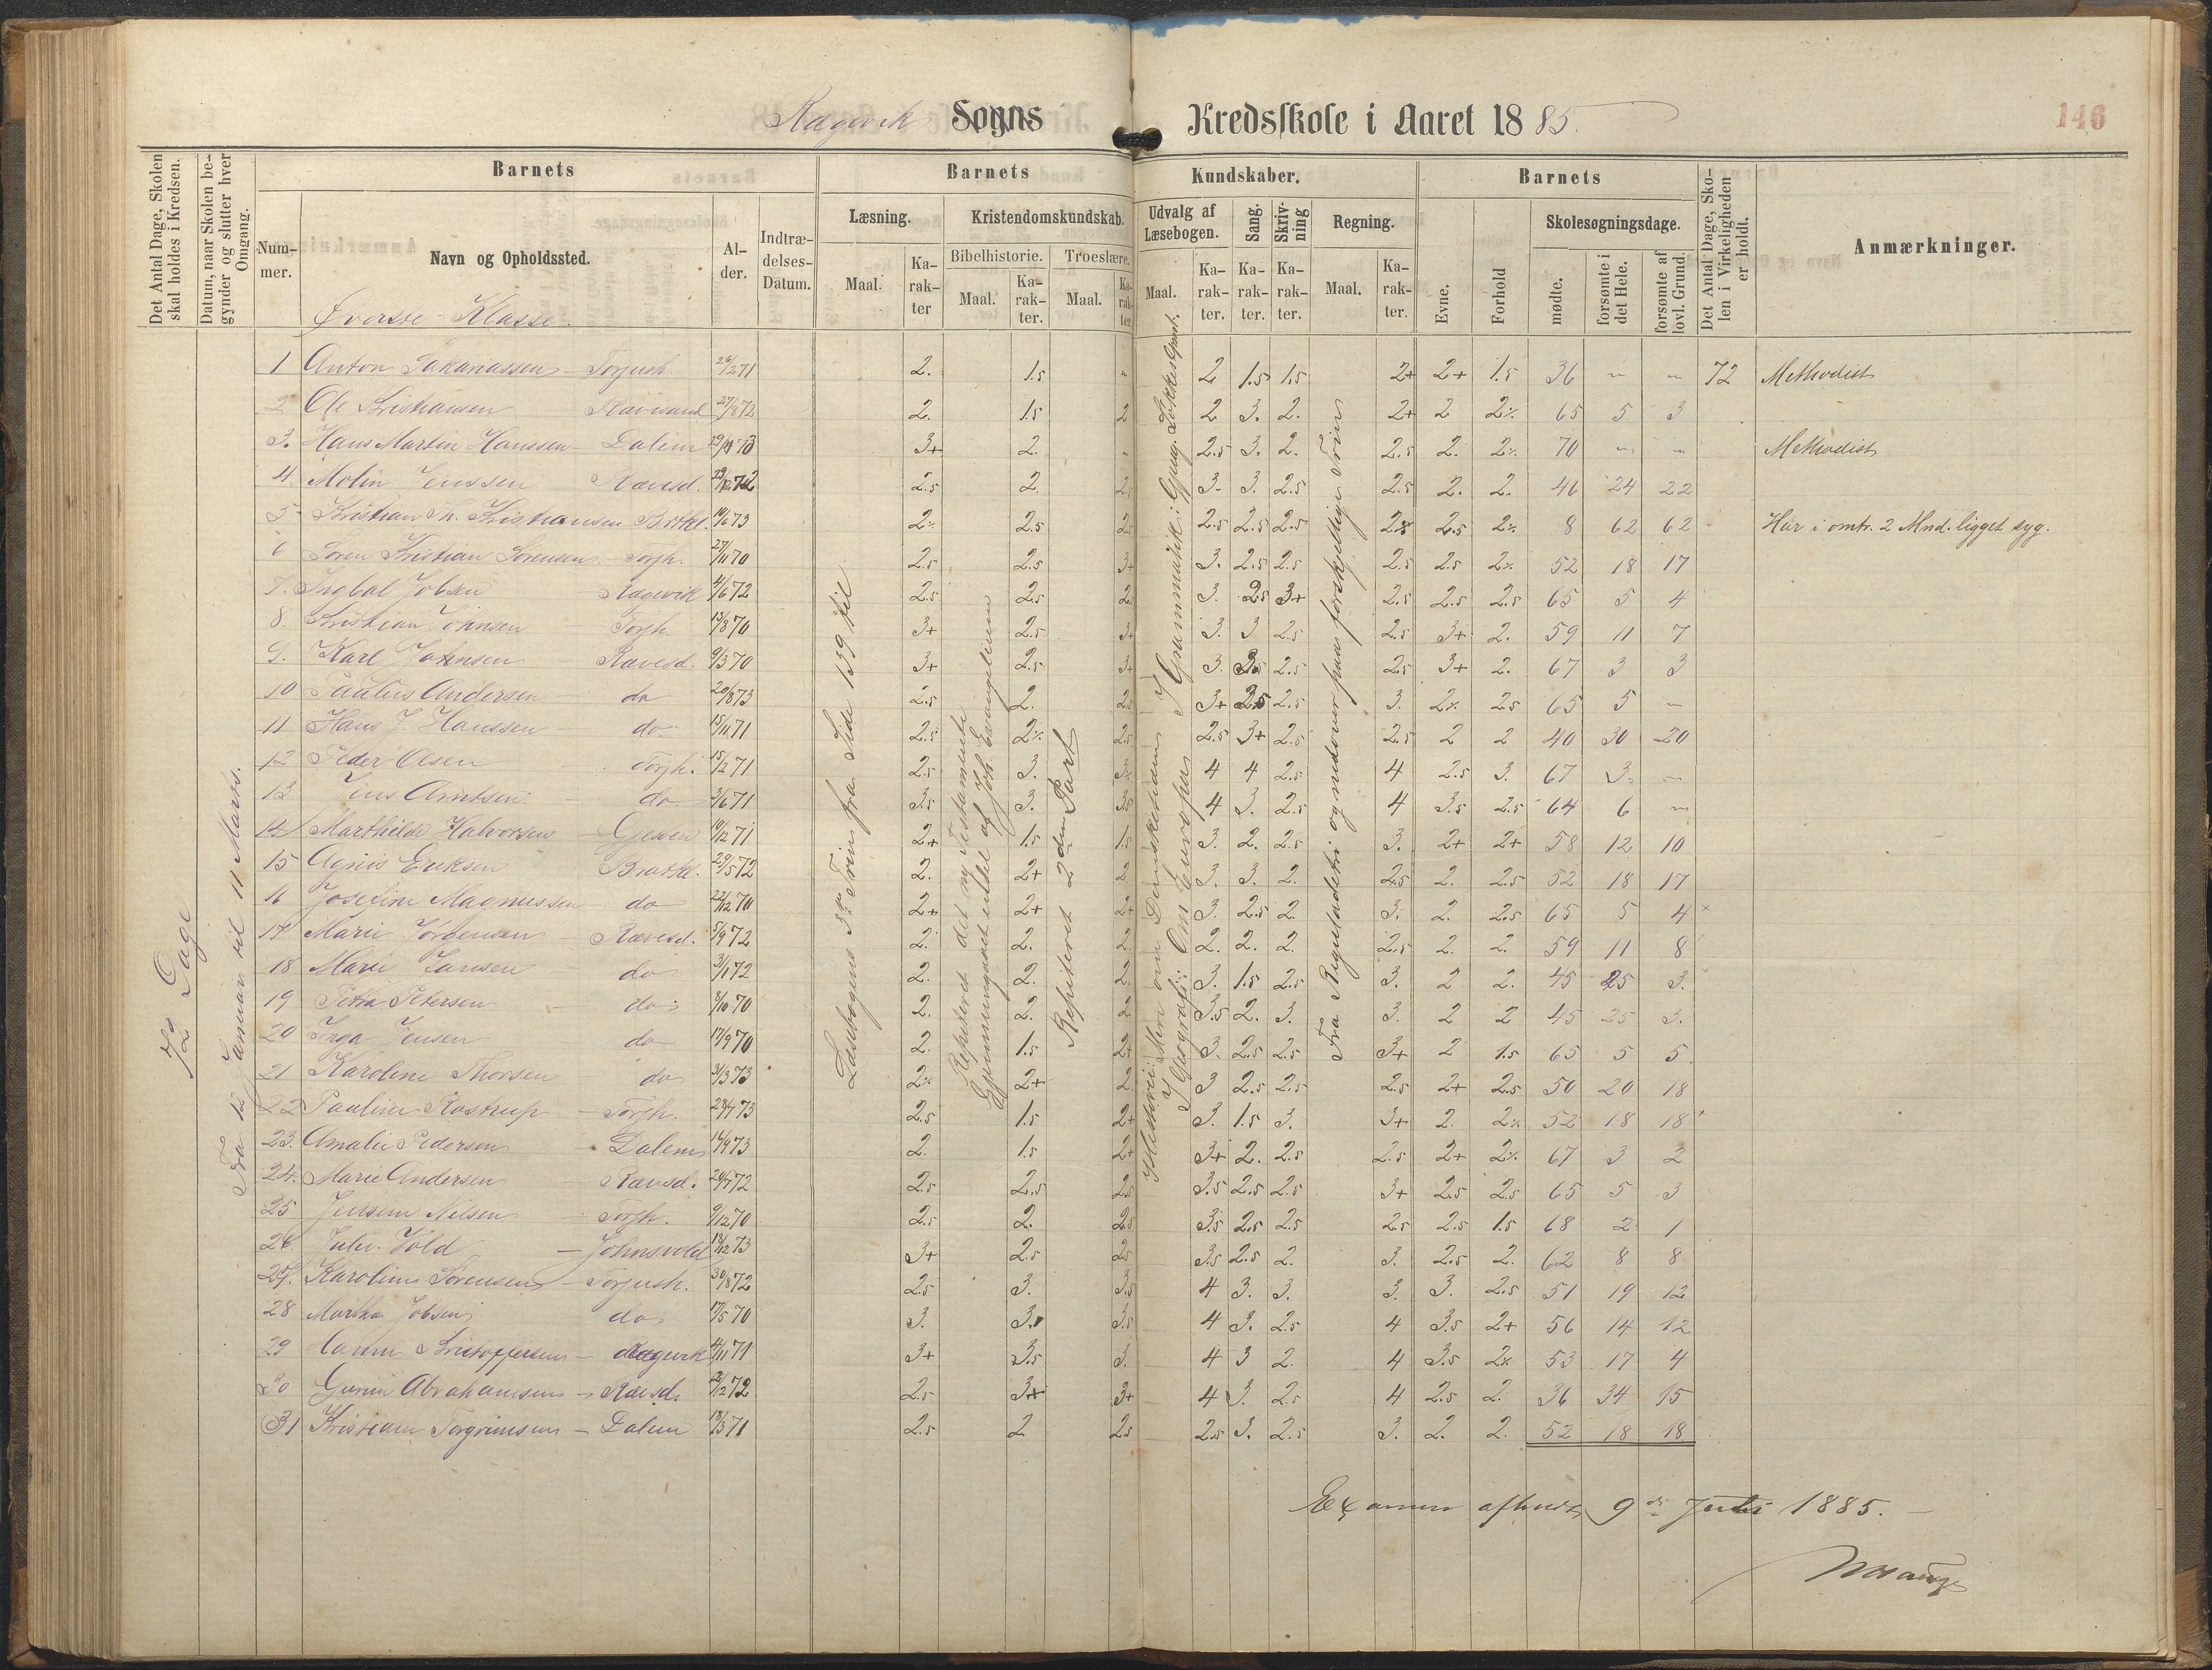 Ragevik Sogns Kredsskole i Aaret 1885.
146
Det Antal Dage, Skolen skal holdes i Kredsen.
Datum, naar Skolen begynder og slutter hver Omgang.
Barnets
Nummer.
Navn og Opholdssted.
Alder.
Indtrædelses-Datum.
Barnets Kundskaber.
Læsning.
Maal.
Karakter
Kristendomskundskab.
Bibelhistorie.
Maal.
Karakter.
Troeslære.
Maal.
Karakter.
Udvalg af Læsebogen.
Maal.
Karakter.
Sang.
Karakter.
Skrivning
Karakter.
Regning.
Maal.
Karakter.
Barnets
Evne.
Forhold
Skolesøgningsdage.
mødte.
forsømte i det Hele.
forsømte af lovl. Grund.
Det Antal Dage, Skolen i Virkeligheden er holdt.
Anmærkninger.
Øverste Klasse.
72 Dage
Fra 12 Januar til 11 Marts.
Læsebogens 3die Trin fra Side 139 til
Repeteret det ny Testamente
Gjennemgaaet endel af Joh. Evangelium
Repeteret 2den Part
I Geografi: Om Europa
Fra Reguladetri og nedover paa forskjellige Trin
1 Anton Sakariassen - Torjush. 26/2 71 2. 1.5 " 2 1.5 1.5 2+ 2+ 1.5 36 " " 72 Methodist
2 Ole Kristiansen - Rævesand 27/8 72 2. 1.5 2 2 3. 2. 2+ 2 2% 65 5 3
3. Hans Martin Hanssen - Dalen 73 3+ 2. " 2.5 3. 2. 2.5 2. 2% 70 " " Methodist
4. Molin Jenssen Rævesd. 72 2.5 2. 2.5 3. 3. 2.5 2.5 2. 2. 46 24 22
5 Kristian Th. Kristiansen Brtkl. 14/6 73 2% 2.5 2.5 2.5 2.5 2.5 2.5 2% 8 62 62 Har i omtr. 2 Mnd. ligget syg.
6 Søren Kristian Sørensen - Torjh. 27/11 70 2.5 2.5 3+ 3. 2.5 2.5 2.5 2.5 2% 52 18 17
7. Ingbal Jobsen Ragevik 4/6 72 2.5 2.5 2. 3. 2.5 3+ 2.5 2.5 2.5 65 5 4
8. Kristian Johnsen Torjh. 13/8 70 3+ 2.5 3+ 3. 3 2.5 2.5 3+ 2. 59 11 7
9. Karl Johnsen - Rævesd. 9/3 70 3+ 2.5 3+ 3. 2.5 2.5 3+ 2. 67 3 3
10 Paulus Andersen - do 20/8 73 2.5 2. 2.5 3+ 2.5 3. 2% 2.5 65 5 "
11 Hans J. Hanssen - do. 15/11 71 2.5 2% 2.5 2.5 3+ 2.5 2.5 2 2 40 30 20
12 Peder Olsen Torjh. 15/2 71 2.5 3. 3% 4 4 2.5 4 2.5 3. 67 3. "
13 Jens Arntsen - do 3/6 71 3.5 3. 3.5 4 3. 2.5 4 3.5 2.5 64 6 "
14 Marthilde Halvorsen - Gjeven 10/12 71 2+ 1.5 1.5 3. 2. 2.5 3. 2+ 2+ 58 12 10
15 Agnis Eriksen - Bratkl. 29/5 72 2. 2+ 2. 3. 3. 2. 2.5 2. 2.5 52 18 17
16 Josefine Magnussen do 22/12 70 2+ 2+ 2+ 3. 2.5 2. 3. 2. 2.5 65 5 4
17 Marie Jørgensen - Rævesd. 5/9 72 2. 2. 2. 2. 2. 2. 2.5 2. 2. 59 11 8
18 Marie Jansen - do 3/1 72 2. 2. 2. 3. 1.5 2.5 3. 2 2. 45 25 3.
19 Petra Petersen - do 8/10 70 2. 2. 2 3.5 2. 3. 3. 2 2 45 25 3.
20 Inga Jensen do 17/9 70 2. 1.5 2+ 3. 2.5 2.5 3+ 2 1.5 65 5 5
21 Karoline Thorsen do 31/3 73 2% 2+ 2 3 2.5 2.5 2.5 2+ 2.5 50 20 18
22 Pauline Rostrup - Torjh. 28/7 73 2.5 1.5 2+ 3. 1.5 3. 3+ 2. 2% 52 18 18
23. Amalie Pedersen - Dalen 14/9 73 2. 1.5 2+ 3+ 2. 2.5 2.5 2+ 2% 67 3 2
24. Marie Andersen - Rævesd. 20/7 72 2.5 2.5 2.5 3.5 2.5 2.5 3+ 2.5 2.5 65 5 3
25 Jensine Nilsen - Torjh. 9/12 70 2.5 2. 2.5 3.5 2.5 2.5 2.5 2.5 1.5 68 2 1
26. Julie Vold - Johnsvold 13/12 73 3+ 2.5 2.5 3.5 2.5 2. 3. 2.5 2. 62 8 8
27. Karoline Sørensen - Torjush. 30/8 72 2.5 3. 3.5 4 3. 3. 3. 3. 2.5 51 19 12
28 Martha Jobsen do 17/5 70 3. 3.5 3.5 4 3. 2.5 4 3.5 2+ 56 14 12
29 Hanne Kristoffersen - Ragevik 4/11 71 3+ 3.5 3. 4 3 2. 4 3.5 2% 53 17 4
30 Gunni Abrahamsen - Rævsd. 72 2.5 3+ 3+ 4 3. 2.5 4 2.5 2. 36 34 15
31 Kristiane Torgrimsen - Dalen 18/3 71 2.5 2 2.5 2.5 3. 2.5 3. 2. 2. 52 18 18
Examen afholdt 9de Juli 1885.